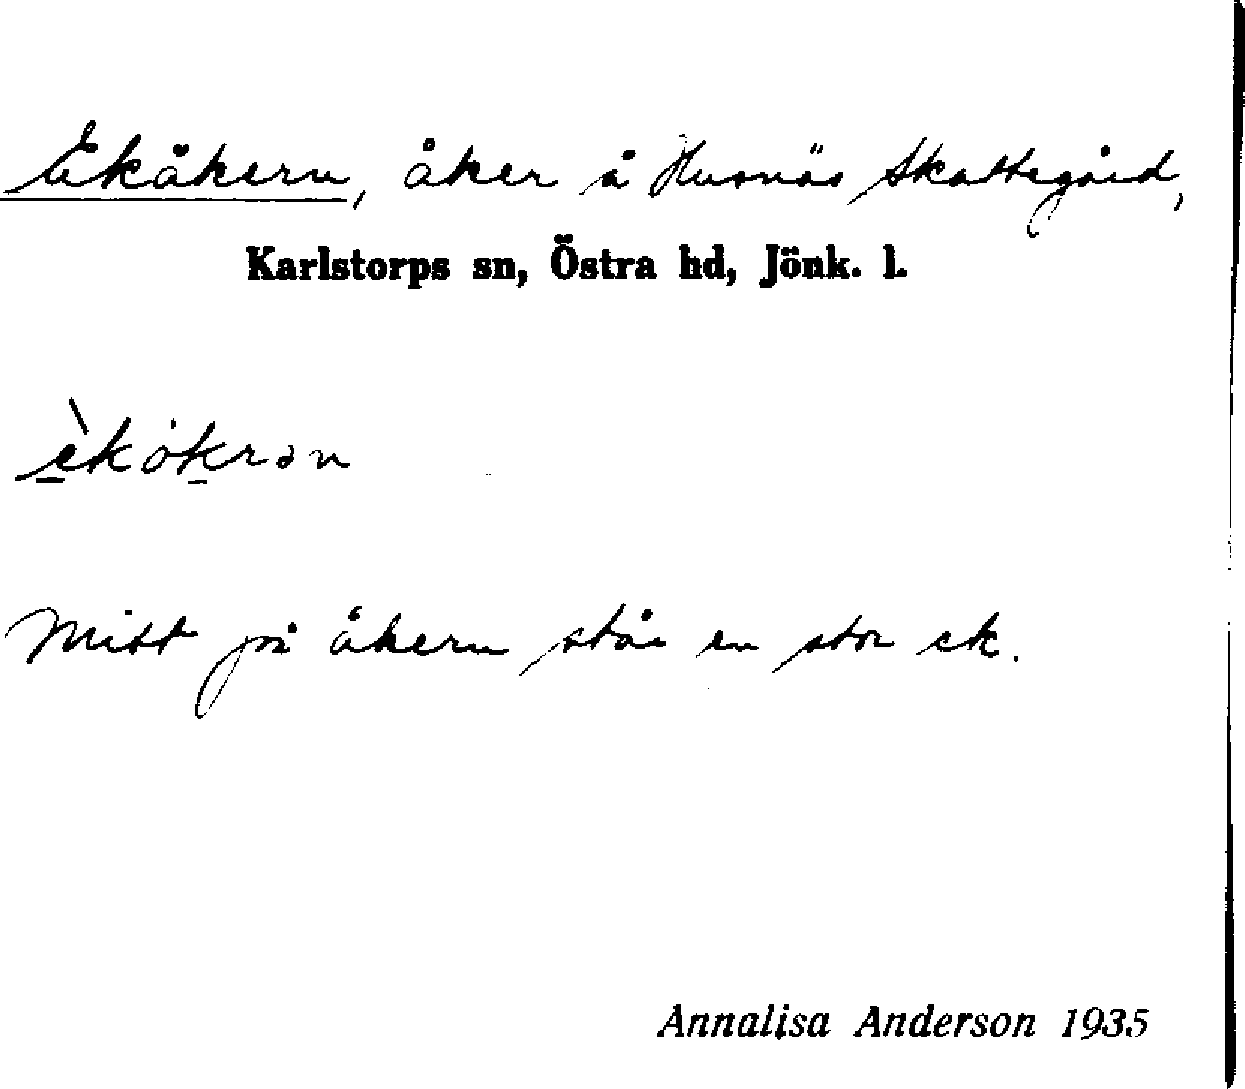 Ekåkern, åker å Husnäs Skattegård,
Karlstorps sn, Östra hd, Jönk. l.
è̱kóḵrən
Mitt på åkern står en stor ek.
Annalisa Anderson 1935